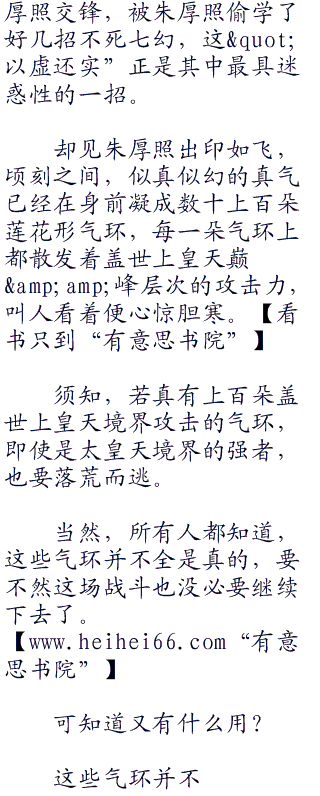 厚照交锋，被朱厚照偷学了
好几招不死七幻，这&quot;
以虚还实”正是其中最具迷
惑性的一招。
却见朱厚照出印如飞，
顷刻之间，似真似幻的真气
已经在身前凝成数十上百朵
莲花形气环，每一朵气环上
都散发着盖世上皇天巅
&amp;amp;峰层次的攻击力，
叫人看着便心惊胆寒。【看
书只到“有意思书院”】
须知，若真有上百朵盖
世上皇天境界攻击的气环，
即使是太皇天境界的强者，
也要落荒而逃。
当然，所有人都知道，
这些气环并不全是真的，要
不然这场战斗也没必要继续
下去了。
【www.heihei66.com“有意
思书院”】
可知道又有什么用？
这些气环并不